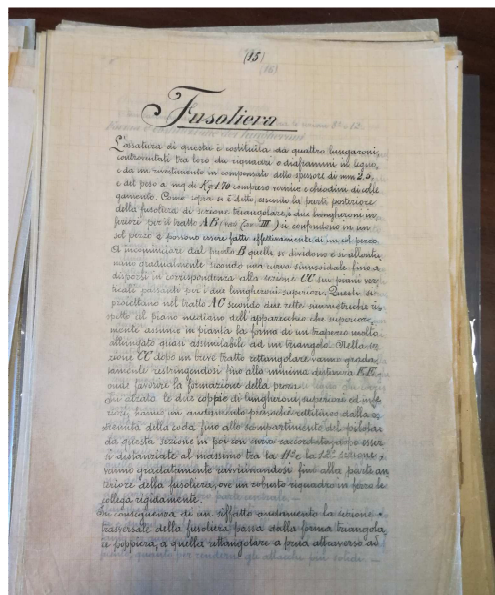 (95)
Fusoliera
L'ossatura di questa è costituita da quattro lungaroni,
controventati tra loro da riquadri e diaframmi in legno,
e da un rivestimento in compensato dello spessore di mm 2,5,
e del peso a mq di Kg 1.70 compreso vernice e chiodini di colle
gamento. Come sopra si è detto, essendo la parte posteriore
della fusoliera di sezione triangolare, i due lungheroni in
feriori per il tratto AB (III) si confondono in un
sol pezzo e possono essere fatti effettivamente di un sol pezzo.
A incominciare dal punto B quelli si dividono e si allonta
nano gradualmente secondo una curva sinusoidale fino a
disporsi in corrispondenza alla sezione CC sui piani ver
ticali passanti per i due lungheroni superiori. Questi si
proiettano nel tratto AC secondo due rette simmetriche ri
spetto al piano mediano dell'apparecchio che superior
mente assume in pianta la forma di un trapezio molto
allungato quasi assimilabile ad un triangolo. Nella se
zione CC dopo un breve tratto rettangolare vanno grada
tamente restringendosi fino alla minima distanza
onde favorire la formazione della prora.
In alzata le due coppie di lungheroni, superiori ed infe
riori, hanno un andamento pressochè rettilineo dalla e
stremità della coda fino allo scompartimento del pilota;
da questa sezione in poi con curva raccordata, dopo esser
si distanziate al massimo tra la 11ª e la 12ª sezione,
vanno gradatamente ravvicinandosi fino alla parte an
teriore della fusoliera, ove un robusto riquadro in ferro le
collega rigidamente.
In conseguenza di un siffatto andamento la sezione
trasversale della fusoliera passa dalla forma triangola
re poppiera, a quella rettangolare a prora attraverso ad